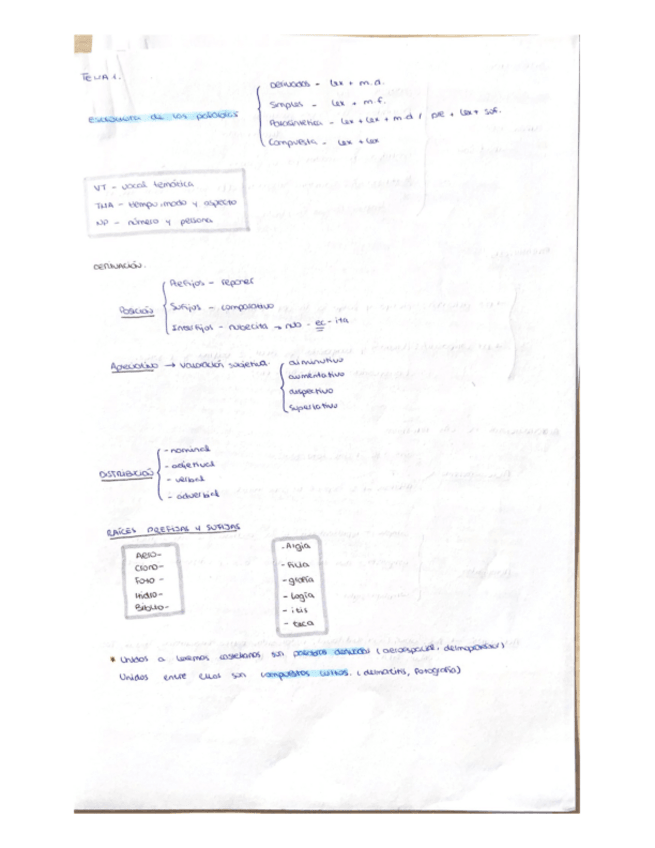 TEMA 1.
Estructura de las palabras
Derivadas - lex + m.d.
Simples - lex + m.f.
Parasintética - lex + lex + m.d / pre + lex + suf.
Compuesta - lex + lex
VT - vocal temática
TMA - tiempo, modo y aspecto
NP - número y persona
DERIVACIÓN.
POSICIÓN
Prefijos - reponer
Sufijos - comparativo
Interfijos - nubecita → nub - ec - ita
Apreciativo → valoración subjetiva
diminutivo
aumentativo
despectivo
superlativo
DISTRIBUCIÓN
- nominal
- adjetival
- verbal
- adverbial
RAÍCES PREFIJAS Y SUFIJAS
Aero-
Crono-
Foto -
Hidro-
Biblio-
- Algia
- Filia
- grafía
- logía
- itis
- teca
Unidos a lexemas castellanos son palabras derivadas (aeroespacial,
Unidos entre ellas son compuestos cultos. (dermatitis, fotografía)